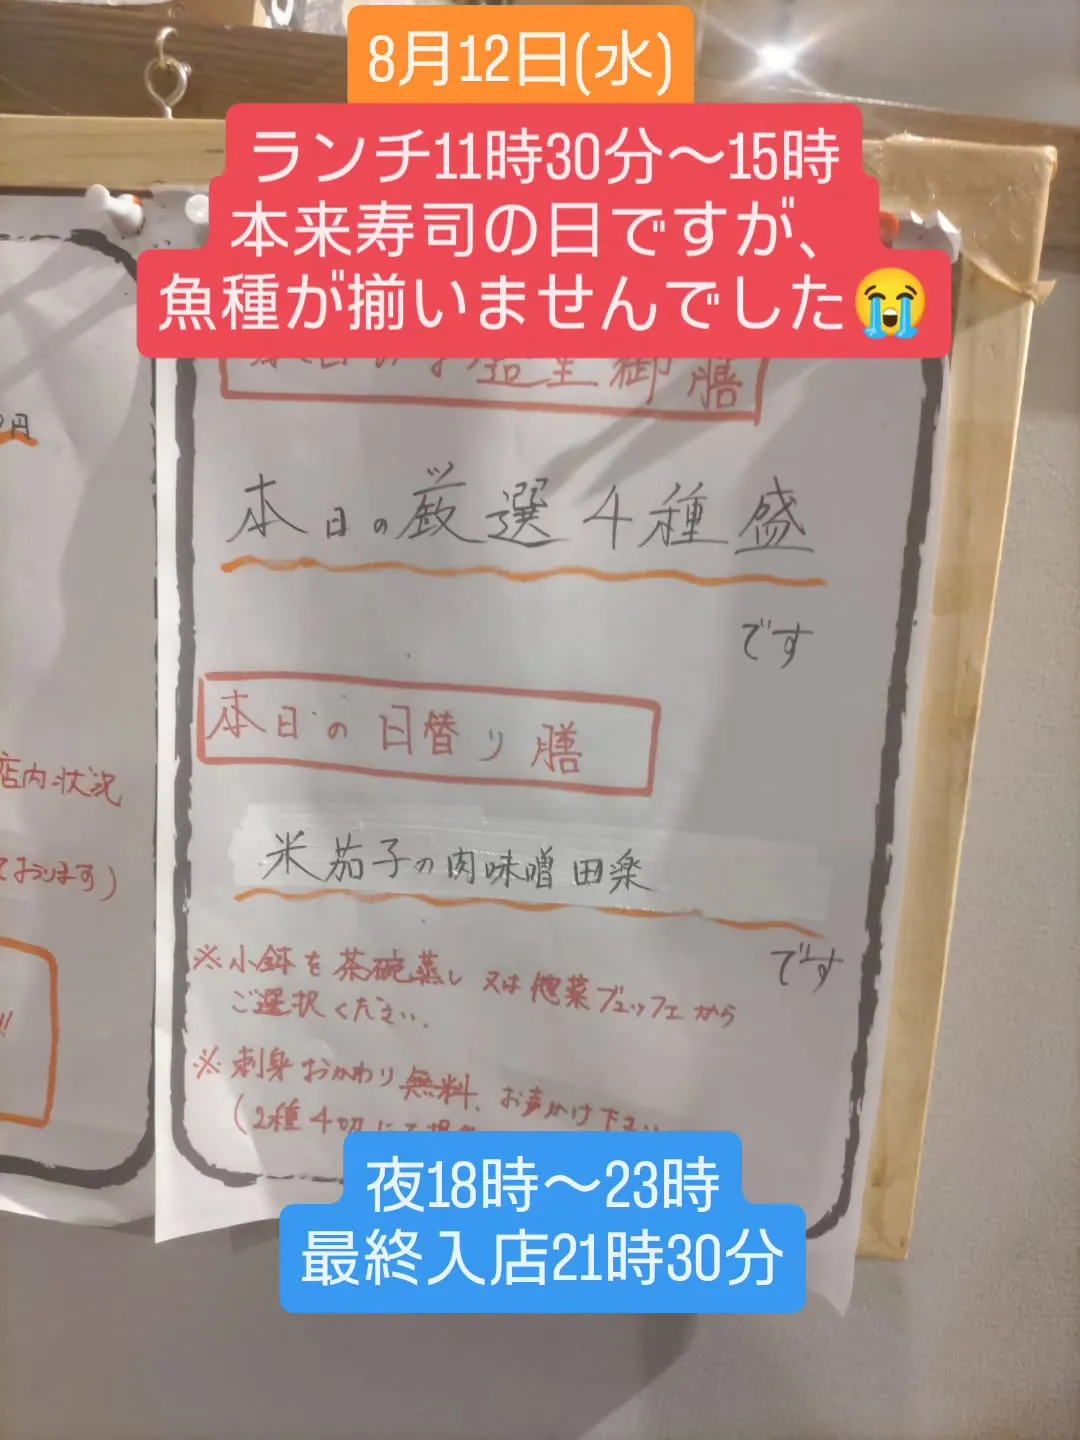 8月12日(水)
ランチ11時30分～15時
本来寿司の日ですが、
魚種が揃いませんでした😭
御膳
本日の厳選4種盛
です
本日の日替り膳
米茄子の肉味噌田楽
です
※小鉢を茶碗蒸し又は惣菜ブュッフェから
ご選択ください.
※刺身おかわり無料、お声かけ下さい
(2種4切にて
円
店内状況
ております)
!!
夜18時～23時
最終入店21時30分